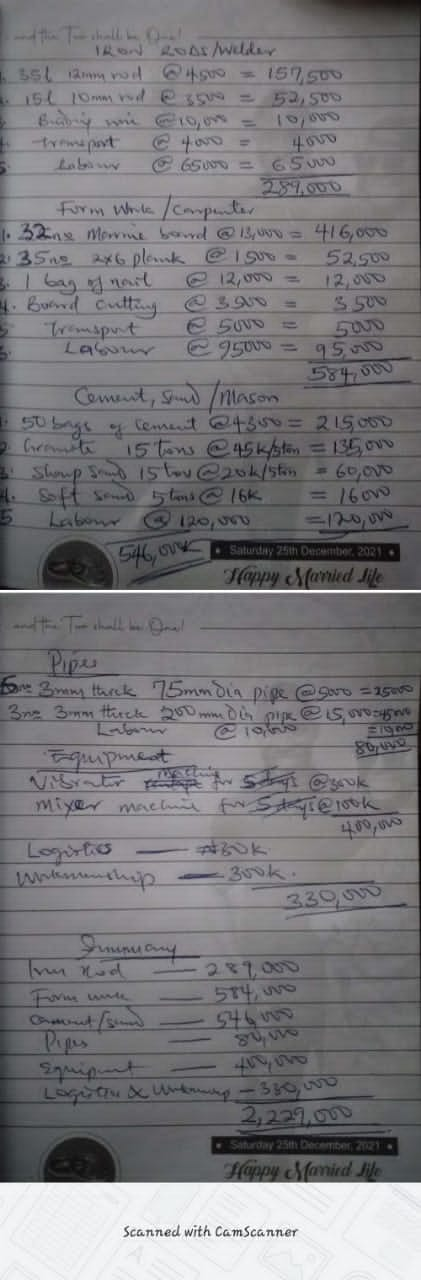 and the Two shall be One!
IRON RODS/Welder
1. 35l 12mm rod @ 4500 = 157,500
2. 15l 10mm rod @ 3500 = 52,500
3. Binding wire @ 10,000 = 10,000
4. transport @ 4000 = 4000
5. Labour @ 65000 = 65000
289,000
Form Work/Carpenter
1. 32no Marine board @ 13,000 = 416,000
2. 35no 2x6 plank @ 1500 = 52,500
3. 1 bag of nail @ 12,000 = 12,000
4. Board Cutting @ 3500 = 3500
5. Transport @ 5000 = 5000
6. Labour @ 95000 = 95,000
584,000
Cement, Sand/Mason
1. 50 bags of cement @ 4300 = 215,000
2. Granite 15 tons @ 45k/5ton = 135,000
3. Sharp Sand 15 ton @ 20k/5ton = 60,000
4. Soft Sand 5 tons @ 16k = 16000
5 Labour @ 120,000 = 120,000
546,000
Saturday 25th December, 2021
Happy Married Life
and the Two shall be One!
Pipes
5no 3mm thick 75mm dia pipe @ 5000 = 25000
3no 3mm thick 200mm Dia pipe @ 15,000 = 45000
Labour @ 10,000 = 10,000
80,000
Equipment
Vibrator machine for @ 300k
Mixer machine for 5 days @ 100k
400,000
Logistics — 30k
Workmanship — 300k.
330,000
Summary
Iron Rod — 289,000
Form work — 584,000
Cement/Sand — 546,000
Pipes — 80,000
Equipment — 400,000
Logistics & Workmanp — 330,000
2,229,000
Saturday 25th December, 2021
Happy Married Life
Scanned with CamScanner